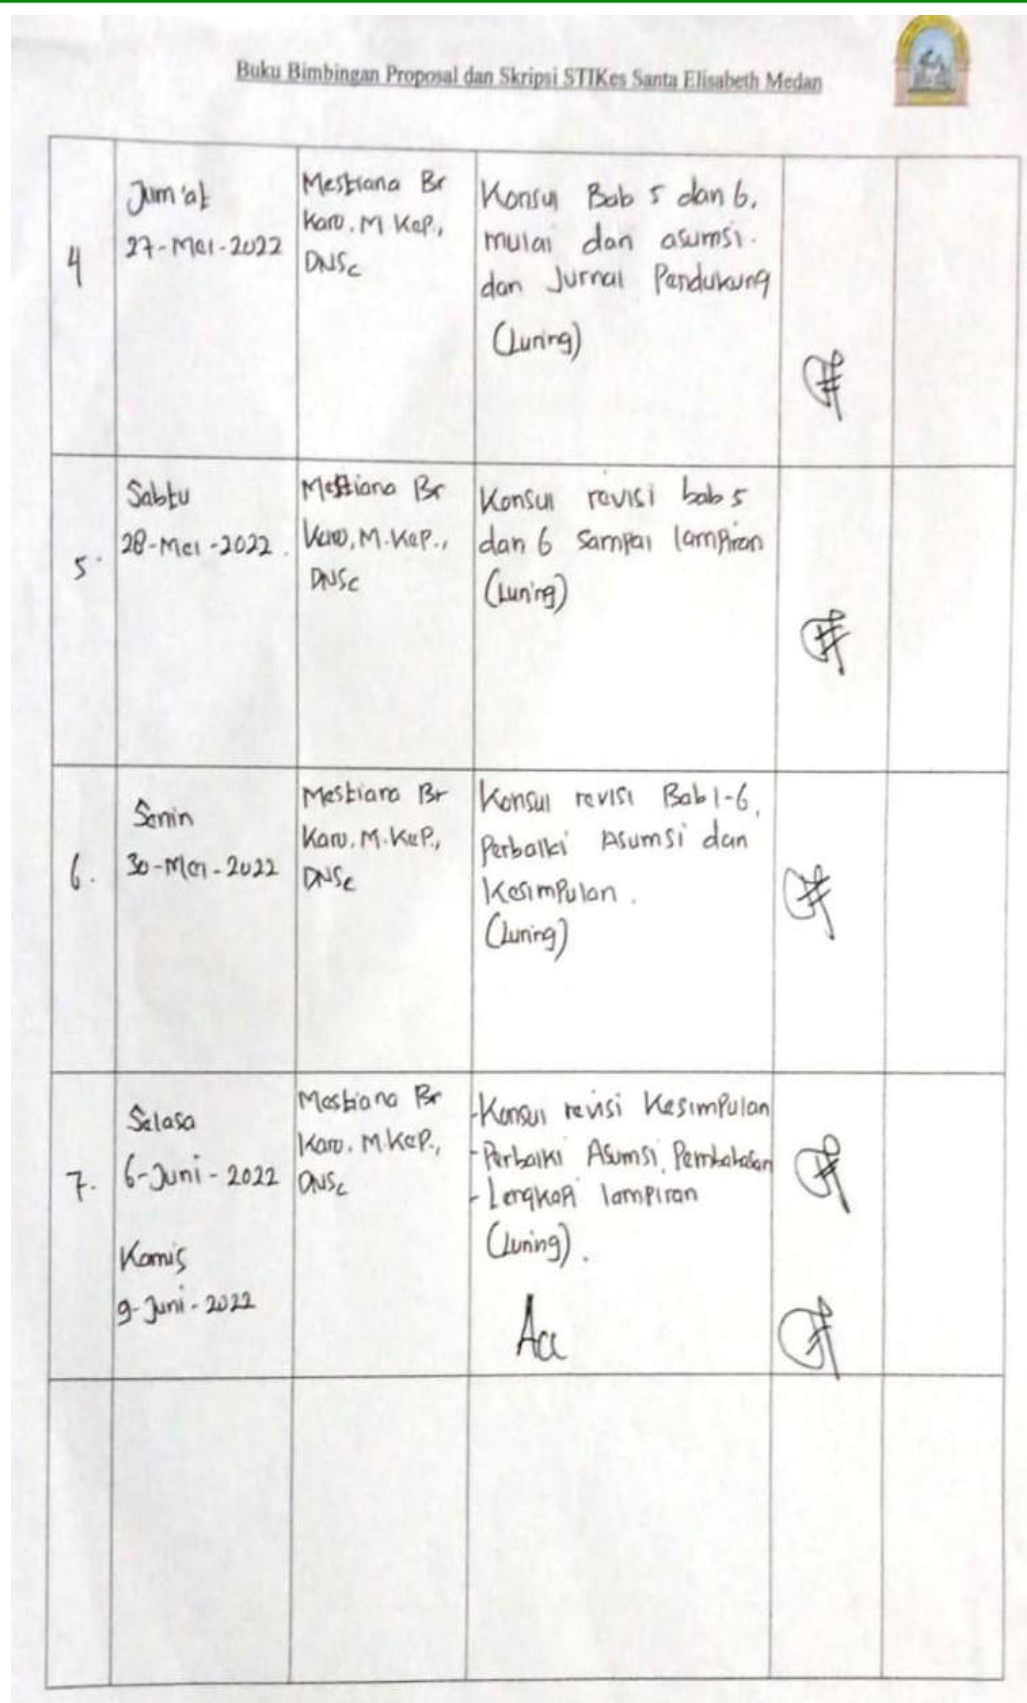 Buku Bimbingan Proposal dan Skripsi STIKes Santa Elisabeth Medan
4
Jum'at
27-Mei-2022
Mestiana Br
Karo, M Kep.,
DNSc
Konsul Bab 5 dan 6.
mulai dan asumsi.
dan Jurnal Pendukung
(Luring)
5.
Sabtu
28-Mei-2022.
Mestiana Br
Karo, M.Kep.,
DNSc
Konsul revisi bab 5
dan 6 sampai lampiran
(Luring)
6.
Senin
30-Mei-2022
Mestiana Br
Karo, M.Kep.,
DNSc
Konsul revisi Bab 1-6,
Perbaiki Asumsi dan
Kesimpulan.
(Luring)
7.
Selasa
6-Juni-2022
Kamis
9-Juni-2022
Mestiana Br
Karo, M.Kep.,
DNSc
-Konsul revisi Kesimpulan
-Perbaiki Asumsi, Pembahasan
-Lengkapi lampiran
(Luring).
Acc